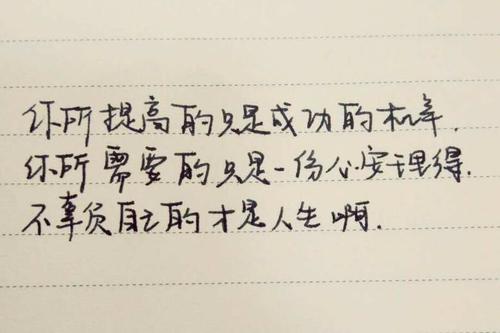 你所提高的只是成功的机率.
你所需要的只是一份心安理得.
不辜负自己的才是人生啊.